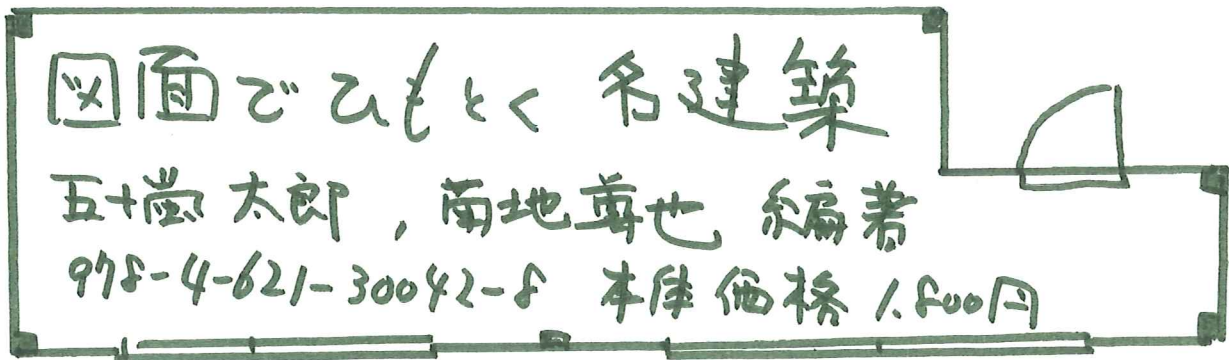 図面でひもとく名建築
五十嵐太郎,菊地尊也 編著
978-4-621-30042-8 本体価格 1,800円